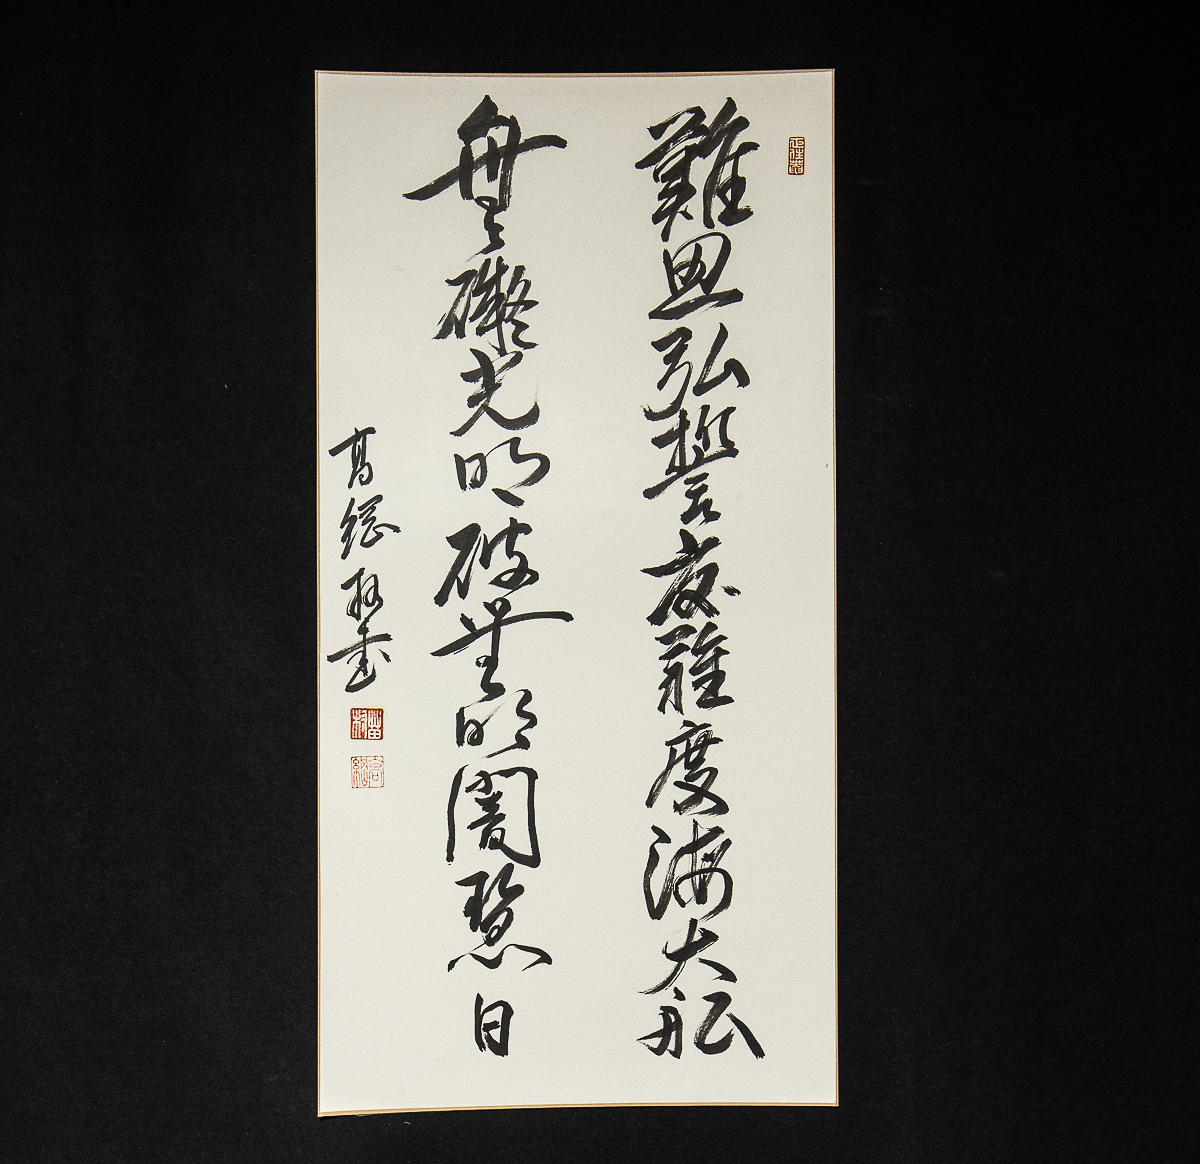 難思弘誓度難度海大舩
無礙光明破無明闇慧日
高綱書